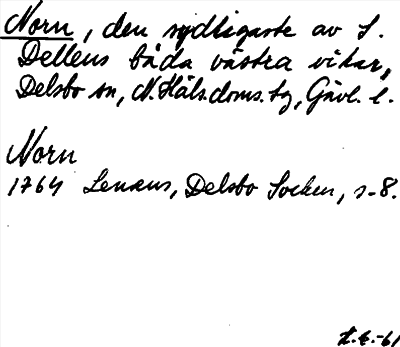 Norn, den sydligaste av S.
Dellens båda västra vikar,
Delsbo sn, N. Häls. doms. tg, Gävl. l.
Norn
1764 Lenæus, Delsbo Socken, s-8.